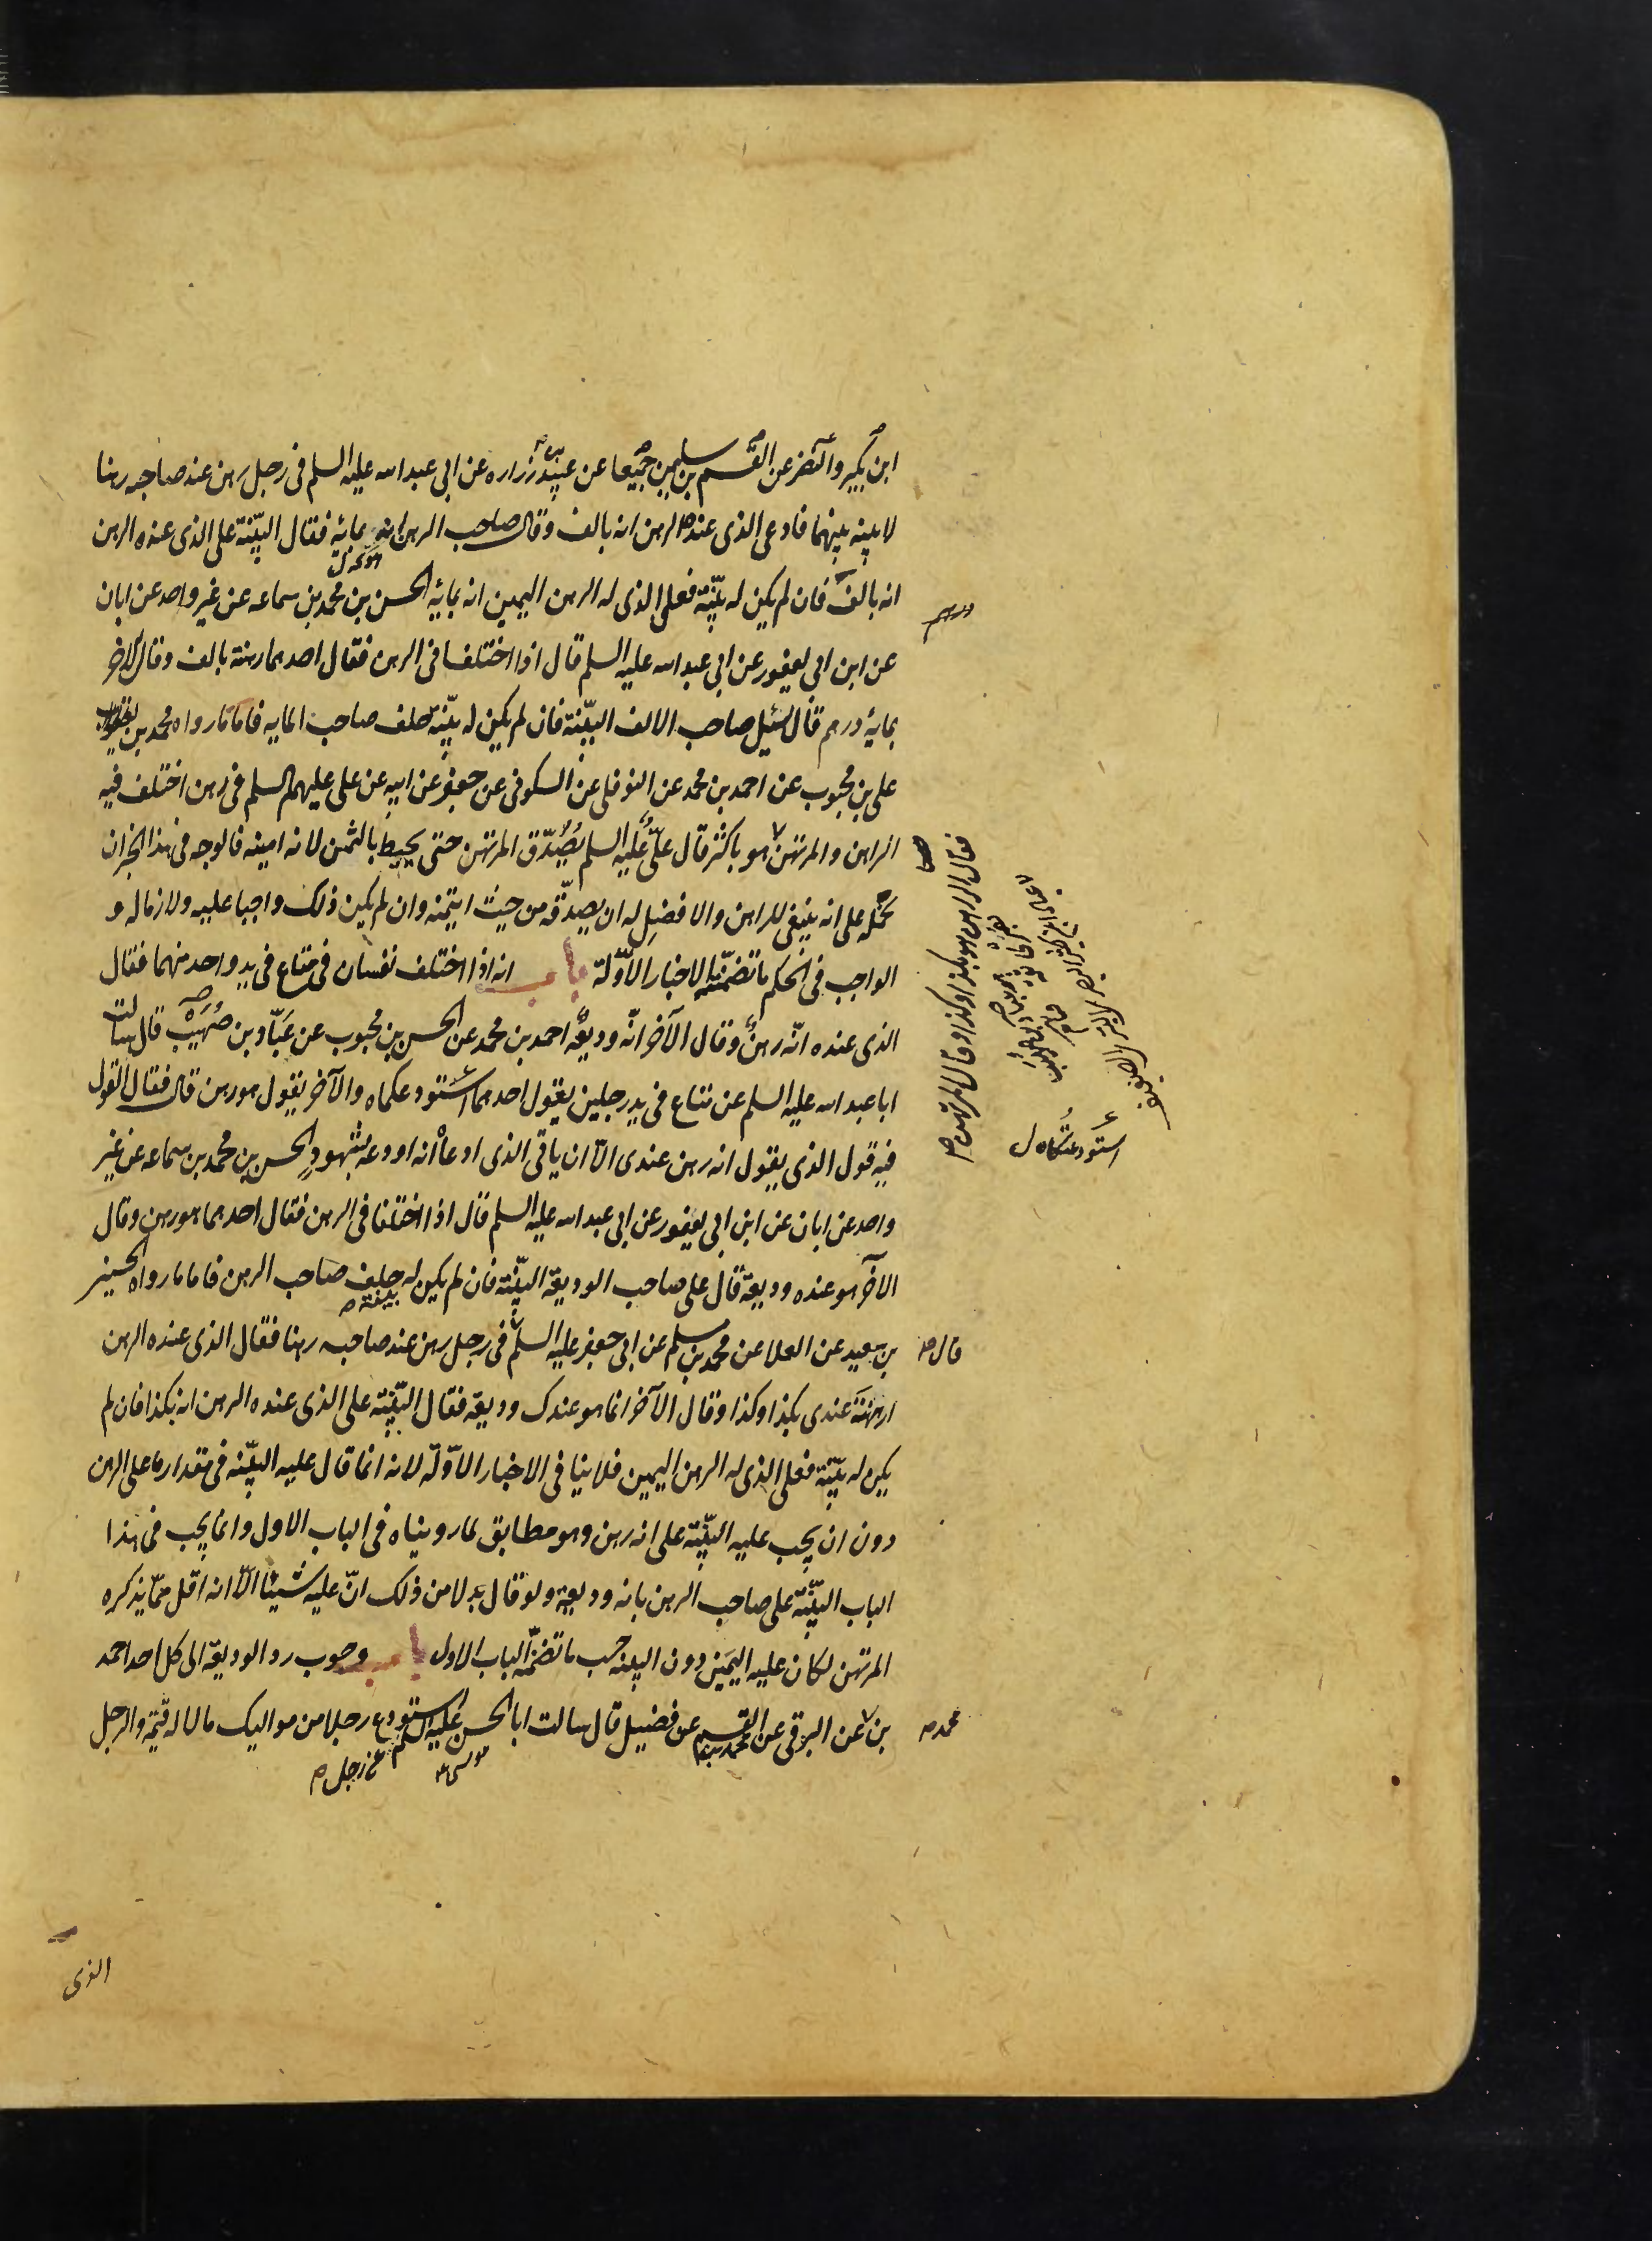 ابن بكير والنضر عن القسم بن سليمن جميعا عن عبيد بن زراره عن ابى عبد الله عليه السلم فى رجل رهن عند صاحبه رهنا
لا بينه بينهما فادعى الذى عنده الرهن انه بالف وقال صاحب الرهن انه بمايه فقال البيّنة على الذى عنده الرهن
انه بالف فان لم يكن له بيّنة فعلى الذى له الرهن اليمين انه بمايه الحسن بن محمد بن سماعه عن غير واحد عن ابان
درهم
عن ابن ابى يعفور عن ابى عبد الله عليه السلم قال اذا اختلفا فى الرهن فقال احدهما رهنته بالف وقال الاخر
بمايه درهم قال يسئل صاحب الالف البيّنة فان لم يكن له بيّنة حلف صاحب المايه فاما ما رواه محمد بن
على بن محبوب عن احمد بن محمد عن النوفلى عن السكونى عن جعفر عن ابيه عن على عليهم السلم فى رهن اختلف فيه
الراهن والمرتهن هو باكثر قال علىّ عليه السلم يُصَدّق المرتهن حتى يحيط بالثمن لانه امينه فالوجه فى هذا الخبر ان
فقال الراهن هو بكذا وكذا وقال المرتهن صح
نحمله على انه ينبغى للراهن والافضل له ان يصدّقه من حيث ايتمنه وان لم يكن ذلك واجبا عليه ولازما له و
الواجب فى الحكم ما تضمّنته الاخبار الاوّلة باب انه اذا اختلف نفسان فى متاع فى يد واحد منهما فقال
الذى عنده انّه رهنٌ وقال الآخر انّه وديعةٌ احمد بن محمد عن الحسن بن محبوب عن عَبّاد بن صُهَيْب قال سالت
ابا عبد الله عليه السلم عن متاع فى يد رجلين يقول احدهما استودعكماه والآخر يقول هو رهن قال فقال القول
استودعتكاه ل
فيه قول الذى يقول انه رهن عندى الّا ان ياتى الذى ادعا انه اودعه بشهودٍ الحسن بن محمد بن سماعه عن غير
واحد عن ابان عن ابن ابى يعفور عن ابى عبد الله عليه السلم قال اذا اختلفا فى الرهن فقال احدهما هو رهن وقال
الآخر هو عنده وديعة قال على صاحب الوديعة البيّنة فان لم يكن له بينة حلف صاحب الرهن فاما ما رواه الحسين
بن سعيد عن العلا عن محمد بن مسلم عن ابى جعفر عليه السلم فى رجل رهن عند صاحبه رهنا فقال الذى عنده الرهن
قال صح
ارتهنتَه عندى بكذا وكذا وقال الآخر انما هو عندك وديعة فقال البيّنة على الذى عنده الرهن انه بكذا فان لم
يكن له بيّنة فعلى الذى له الرهن اليمين فلا ينافى الاخبار الاوّلة لانه انما قال عليه البيّنه فى مقدار ما على الرهن
دون ان يجب عليه البيّنة على انه رهن وهو مطابق لما رويناه فى الباب الاول وانما يجب فى هذا
الباب البيّنة على صاحب الرهن بانه وديعة ولو قال بدلا من ذلك انّ عليه شيئا الّا انه اقل ممّا يذكره
المرتهن لكان عليه اليمين دون البينه حسب ما تضمّنه الباب الاول باب وجوب رد الوديعة الى كل احد احمد
بن عن البرقى عن القسم بن محمد عن فضيل قال سالت ابا الحسن عليه السلم عن رجل استودع رجلا من مواليك مالا له قيمة والرجل
محمد صح
الذى